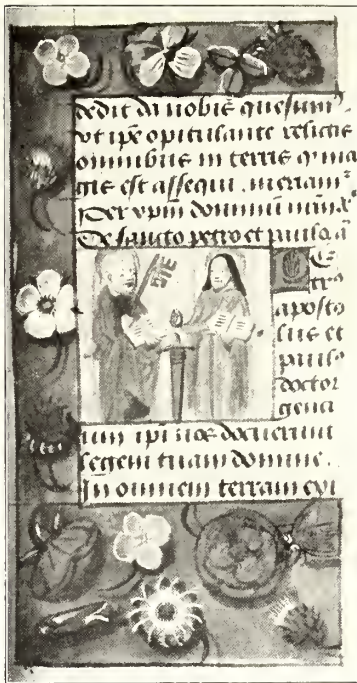 dedit da nobis quesum⁹
vt ipē opitulante relictis
omnibus in terris q ma
gis est assequi . mereamʳ
Per xpm dominū nrm a
De sancto petro et paulo. ā
Pe
trus
aposto
lus et
paulus
doctor
genci
um ipi nos docuerunt
legem tuam domine .
In omnem terram exi